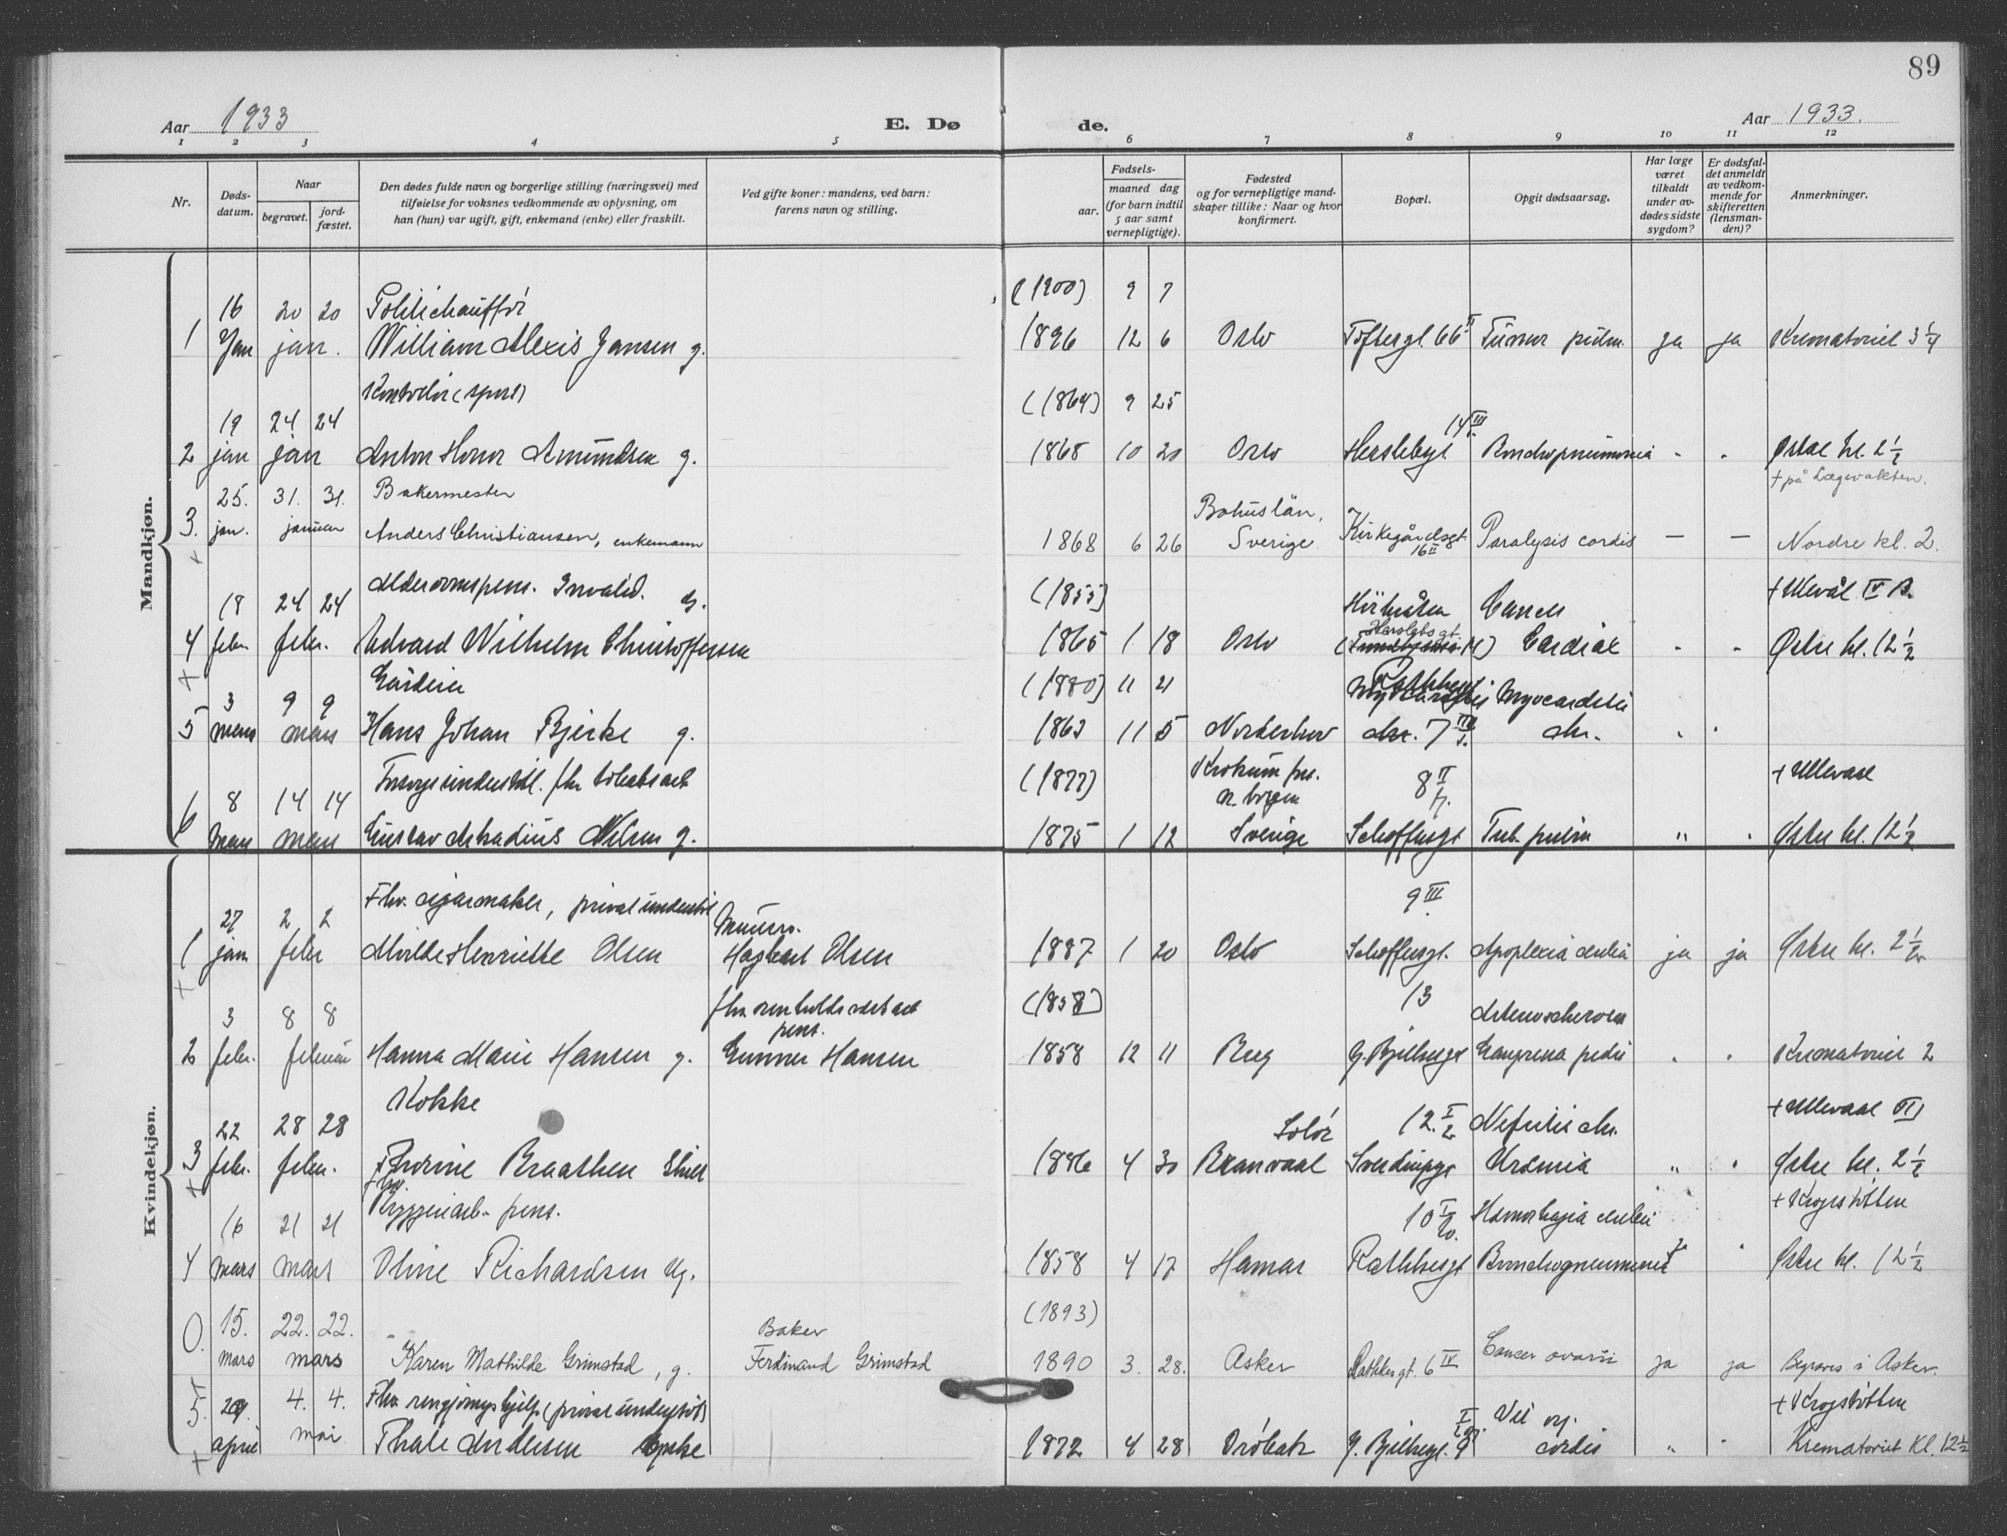 89
Aar 1933 E. Dø de. Aar 1933.
1 2 3 4 5 6 7 8 9 10 11 12
Nr.
Døds-
datum.
Naar
begravet.
jord-
fæstet.
Den dødes fulde navn og borgerlige stilling (næringsvei) med
tilføielse for voksnes vedkommende av oplysning, om
han (hun) var ugift, gift, enkemand (enke) eller fraskilt.
Ved gifte koner: mandens, ved barn:
farens navn og stilling.
Fødsels-
aar.
maaned dag
(for barn indtil
5 aar samt
vernepligtige).
Fødested
og for vernepligtige mand-
skaper tillike: Naar og hvor
konfirmert.
Bopæl.
Opgit dødsaarsag.
Har læge
været
tilkaldt
under av-
dødes sidste
sygdom?
Er dødsfal-
det anmeldt
av vedkom-
mende for
skifteretten
(lensman-
den)?
Anmerkninger.
Mandkjøn.
16 20 20 Politichauffør (1900) 9 7
1 Jan jan. William Alexis Jansen g. 1896 12 6 Oslo Toftesgt. 66 II Tumor pulm. ja ja Krematoriet 3 1/4
(1864) 9 25
19 24 24 14 III
2 jan jan Anton Amundsen g. 1868 10 20 Oslo Herslebsgt. Bronchopneumonia " " Østre kl. 2 1/2
25. 31. 31. Bakermester Bohuslän, + på Lægevakten.
3. jan. januar Anders Christiansen, enkemann 1868 6 26 Sverige Kirkegårdsgt. 16 II Paralysis cordis — — Nordre kl. 2.
+
18 24 24 Alderdomspens. Invalid. g. (1855) Cancer + Ullevål IV B.
4 febr. febr. Edvard Wilhelm Christoffersen 1865 1 18 Oslo Herslebs gt. Cardiae " " Østre kl. 12 1/2
+
3 9 9 (1880) 11 21 Rathkesgt Myocarditis
5 mars mars Hans Johan Bjerke g. 1863 11 5 Norderhov chr. 7 III chr. " "
8 14 14 Forsorgsunderstøt. fhv. tobaksarb (1877) 8 II + Ullevaal
6 mars mars Gustav Arkadius Nilsen g. 1875 1 12 Sverige Schouffusgt Tub. pulm " " Østre kl. 12 1/2
Kvindekjøn.
27 2 2 Fhv. cigarmaker, privat understøt Murer. 9 III
1 jan febr Alvilde Henriette Olsen Hagbart Olsen 1887 1 20 Oslo Apoplexia cerebri ja ja Østre kl. 2 1/2
+
3 8 8 fhv. renholdsverkarb pens. (1858) 13
2 febr. februar Hanna Marie Hansen g. Gunner Hansen 1858 12 11 Berg G. Bjelkesgt Gangrena pedis " " Krematoriet 2
22 28 28 Kokke Solør 12. I Nefritis chr. + Ullevaal VI
3 febr. febr. Thorine Braathen Skilt 1886 4 30 Branvaal Sverdrupsgt Uræmia " " Østre kl. 2 1/2
+
16 21 21 Fhv. Bryggeriarb. pens. 10 I + Krogstøtten
4 mars mars Oline Richardsen Ug. 1858 4 17 Hamar Rathkesgt Bronchopneumonia " Østre kl. 12 1/2
0. 15. 22. 22. Baker (1893)
mars mars Karen Mathilde Grimstad, g. Ferdinand Grimstad 1890 3. 28. Asker Rathkes gt. 6 IV Cancer ovarii ja ja Begraves i Asker.
29. 4. 4. Fhv. rengjøringshjelp (privat understøt) Vit. org. + Krogstøtten
5. april mai Thale Andersen enke 1872 4 28 Drøbak G. Bjelkesgt. 9 I cordis " " Krematoriet kl. 12 1/2
+